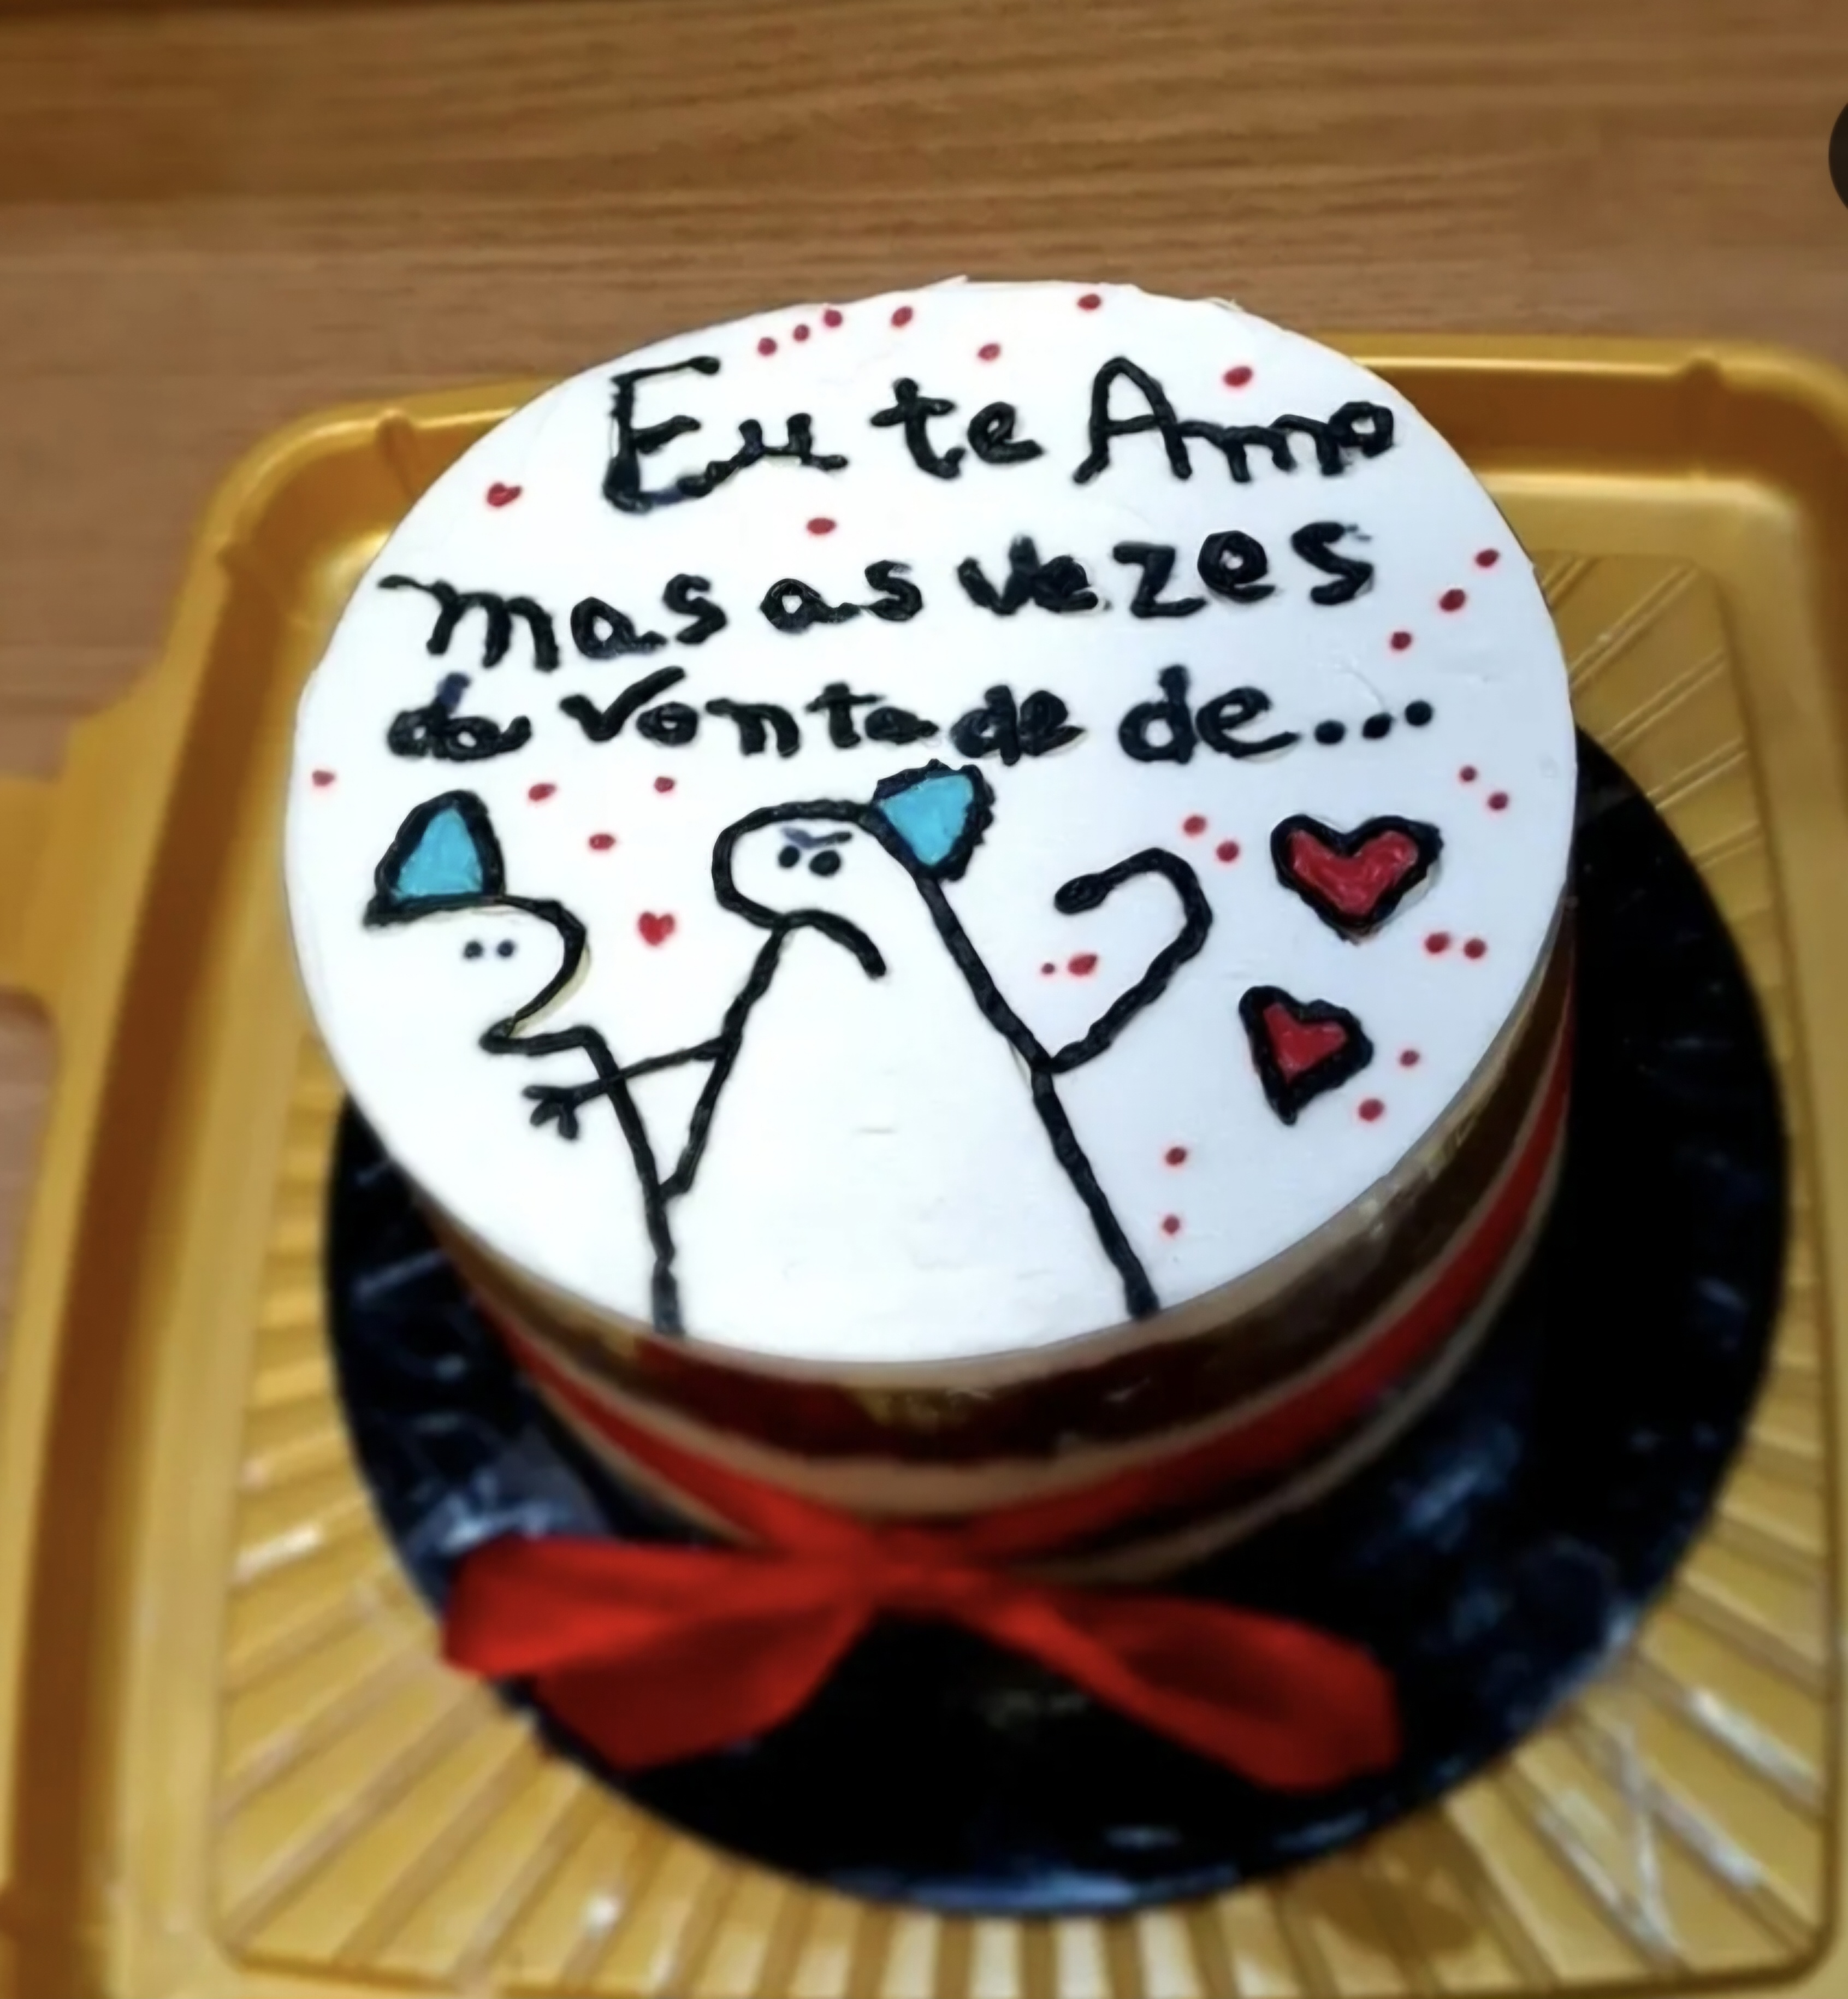 Eu te Amo
mas as vezes
da vontade de...